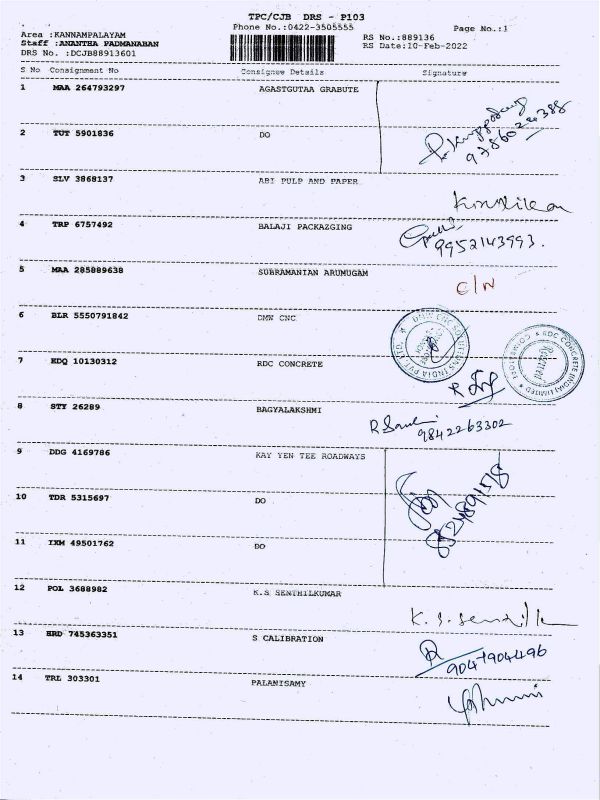 TPC/CJB DRS - P103
Phone No.:0422-3505555
Page No.:1
Area :KANNAMPALAYAM
Staff :ANANTHA PADMANABAN
DRS No. :DCJB88913601
RS No.:889136
RS Date:10-Feb-2022
S No Consignment No Consignee Details Signature
1 MAA 264793297 AGASTGUTAA GRABUTE
9786024388
2 TUT 5901836 DO
3 SLV 3868137 ABI PULP AND PAPER
4 TRP 6757492 BALAJI PACKAZGING
9952143993.
5 MAA 285889638 SUBRAMANIAN ARUMUGAM
C/N
6 BLR 5550791842 DMW CNC
DMW CNC SOLUTIONS INDIA PVT. LTD.
7 HDQ 10130312 RDC CONCRETE
RDC CONCRETE (INDIA) LIMITED
8 STY 26289 BAGYALAKSHMI
9842263302
9 DDG 4169786 KAY YEN TEE ROADWAYS
10 TDR 5315697 DO
11 IXM 49501762 DO
12 POL 3688982 K.S SENTHILKUMAR
K. S. Senthil
13 HRD 745363351 S CALIBRATION
9047904496
14 TRL 303301 PALANISAMY